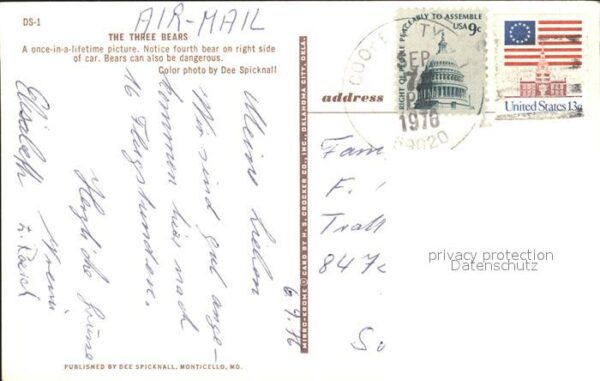 DS-1
AIR-MAIL
THE THREE BEARS
A once-in-a-lifetime picture. Notice fourth bear on right side
of car. Bears can also be dangerous.
Color photo by Dee Spicknall
6.9.76
Meine Lieben
Wir sind gut ange-
kommen hier nach
16 Flugstunden.
Herzliche Grüsse
Elisabeth
PUBLISHED BY DEE SPICKNALL, MONTICELLO, MO.
MIRRO-KROME ® CARD BY H. S. CROCKER CO., INC., OKLAHOMA CITY, OKLA.
address
COOKE CITY
SEP
7
1976
59020
RIGHT OF PEOPLE PEACEABLY TO ASSEMBLE
USA 9c
United States 13c
Fam
F.
847
privacy protection
Datenschutz